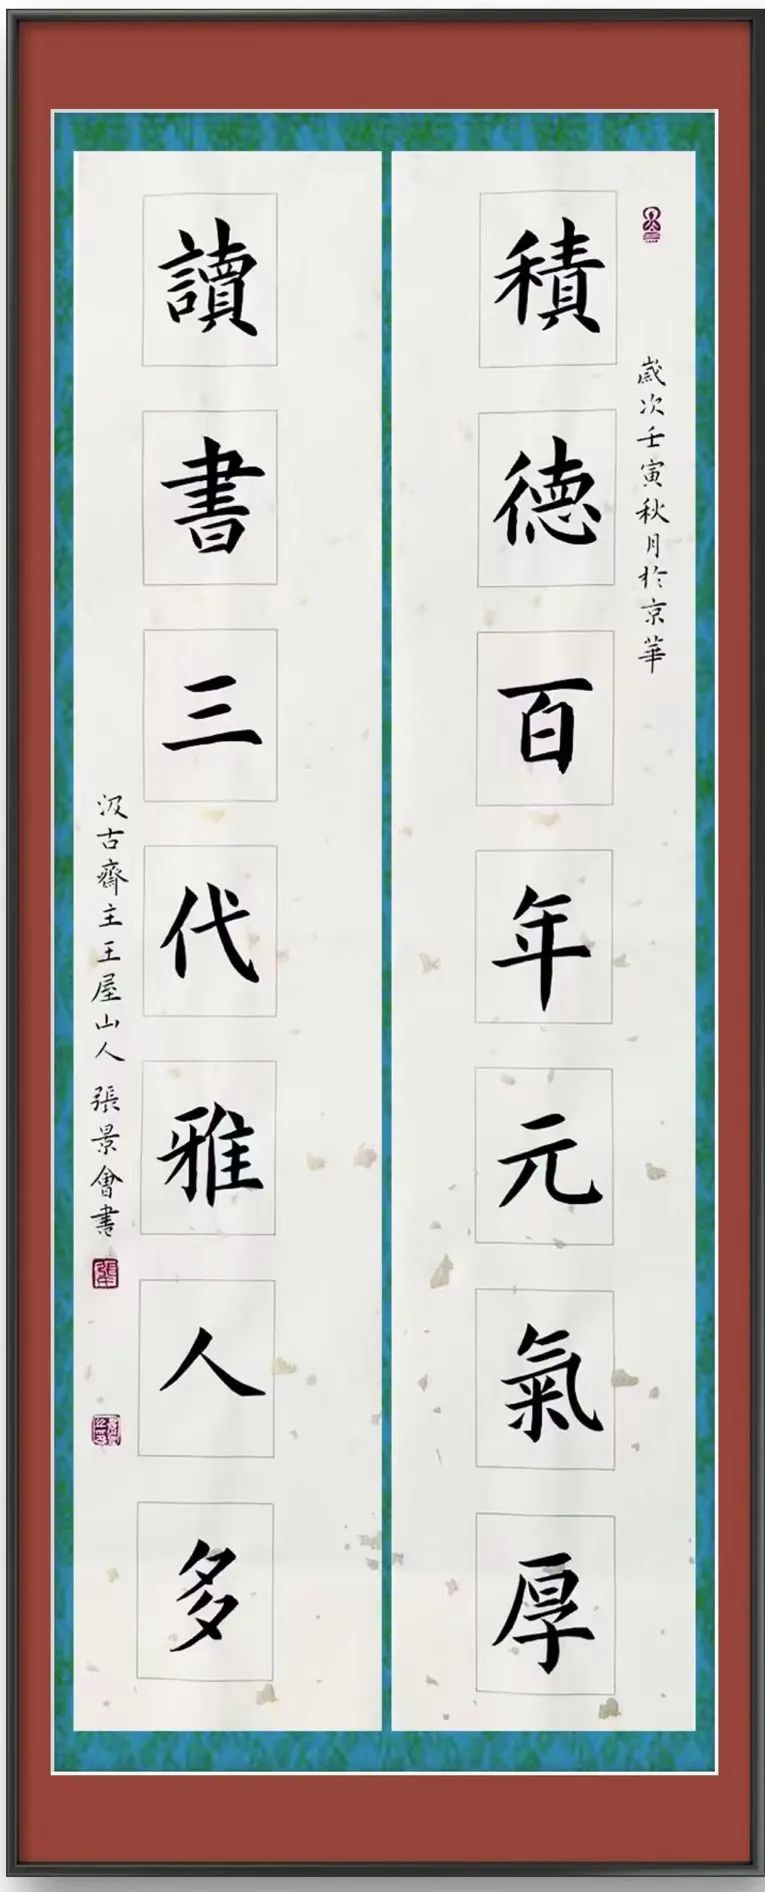 歲次壬寅秋月於京華
積德百年元氣厚
讀書三代雅人多
汲古齋主王屋山人 張景會書